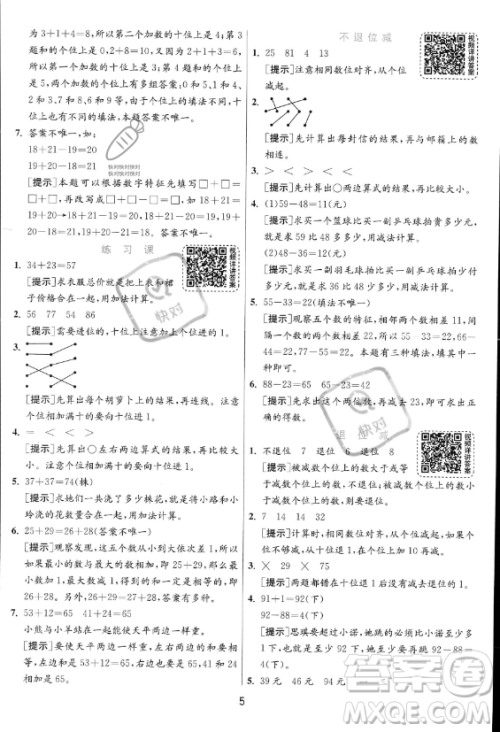 为 3+1+4=8,所以第二个加数的十位上是 3。第 3
题和的个位上是 9,个位上的数有多组答案:0 和 9,1
和 8,2 和 7,3 和 6,4 和 5。第 4 题和的个位上是 1,
个位上的数有多组答案:2 和 9,3 和 8,4 和 7,5 和
6。第 3 题和第 4 题十位上的填法不同,十
位上也可以填 0。
7. 答案不唯一,如
18+21-19=20
18+20-19=19
快对快对快对
[提示]本题可以根据数字特征先填写□+□=
□+□→再改写成□+□-□=□。如 18+21=
20+19→18+21-19=20 或 18+21-20=19。
练 习 课
1. 34+23=57
[提示]求衣服总价就是把上衣和裙
子价格合在一起,用加法计算。
视频详讲答案
2. 56 77 54 98
[提示]需要进位的,十位上注意加上个位进的 1。
3.
[提示]先算出每个胡萝卜上的结果,再连线。注意
个位相加满十的要向十位进 1。
4. = < < >
[提示]先算出○左右两边算式的结果,再比大小。
5. 37+37=74(株)
[提示]求她们一共送了多少株花,就是将小路和小
玲浇的花数量合在一起,用加法计算。
6. 25+29=26+28(答案不唯一)
[提示]观察发现,这五个数从小到大依次差 1,所以
最大的数与最小的数相加等于中间两个数相加,即
25+29=26+28。另外,25+28=26+27,26+29=
27+28。
7. 53+12=65 41+24=65
小熊与小羊站在一起能使天平两边一样重。
[提示]要使天平两边一样重,则天平两边的和要相
等。通过计算发现 53+12 与 41+24 的和相等,都
是 65。
不 退 位 减
1. 25 81 4 13
[提示]注意相同数位对齐,从个位
减起。
视频详讲答案
2.
[提示]先计算出每封信的结果,再与邮箱上的数
相连。
3. > < < < < <
[提示]先计算出○两边算式的结果,再比较。
4. (1)59-48=11(元)
[提示]求买一个篮球比买一副乒乓球拍贵多少元,
就是求 59 比 48 多多少,用减法计算。
(2)48-36=12(元)
[提示]求买一副羽毛球拍比买一副乒乓球拍便宜
多少元,就是求 36 比 48 少多少,用减法计算。
5. 55-33=22(答案不唯一)
[提示]观察五个数的特征,可以发现两个数相减的
结果是第三个数,所以 55-33=22,55-22=33,66-
44=22,本题有三种填法,填其中一
种即可。
6. 88-23=65 65-23=42
[提示]先求出这两位数,再求出
正确的得数。
快对
1. 不退位 7 退位 8 退位 8
[提示]被减数个位上的数大于或等于减数个位上
的数,不退位。被减数个位上的数小于减数个位上
的数,退位。
视频详讲答案
2. 7 14 14 32
[提示]计算时,相同数位对齐,从个位减起。如果
个位不够减,从十位退 1,在个位上加 10 再减。
3. × 29 × 75
[提示]两题都错在十位退 1 后没有在十位减去 1。
4. 91+1=92(下)
92-88=4(下)
[提示]思琪要超过小诺,她跳的下数至少要比小诺
多 1 下,即至少要跳 91+1=92(下),所以至少还要
5. 39 元 94 元
5
答案圈
MXQE.COM